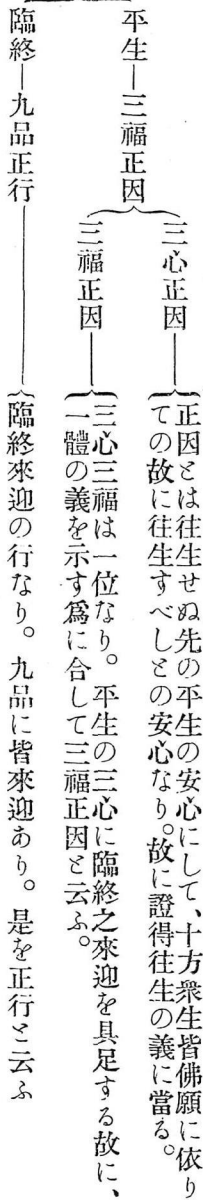 平生―三福正因
三心正因―
正因とは往生せぬ先の平生の安心にして、十方衆生皆佛願に依り
ての故に往生すべしとの安心なり。故に證得往生の義に當る。
三福正因―
三心三福は一位なり。平生の三心に臨終之來迎を具足する故に、
一體の義を示す爲に合して三福正因と云ふ。
臨終―九品正行―
臨終來迎の行なり。九品に皆來迎あり。是を正行と云ふ